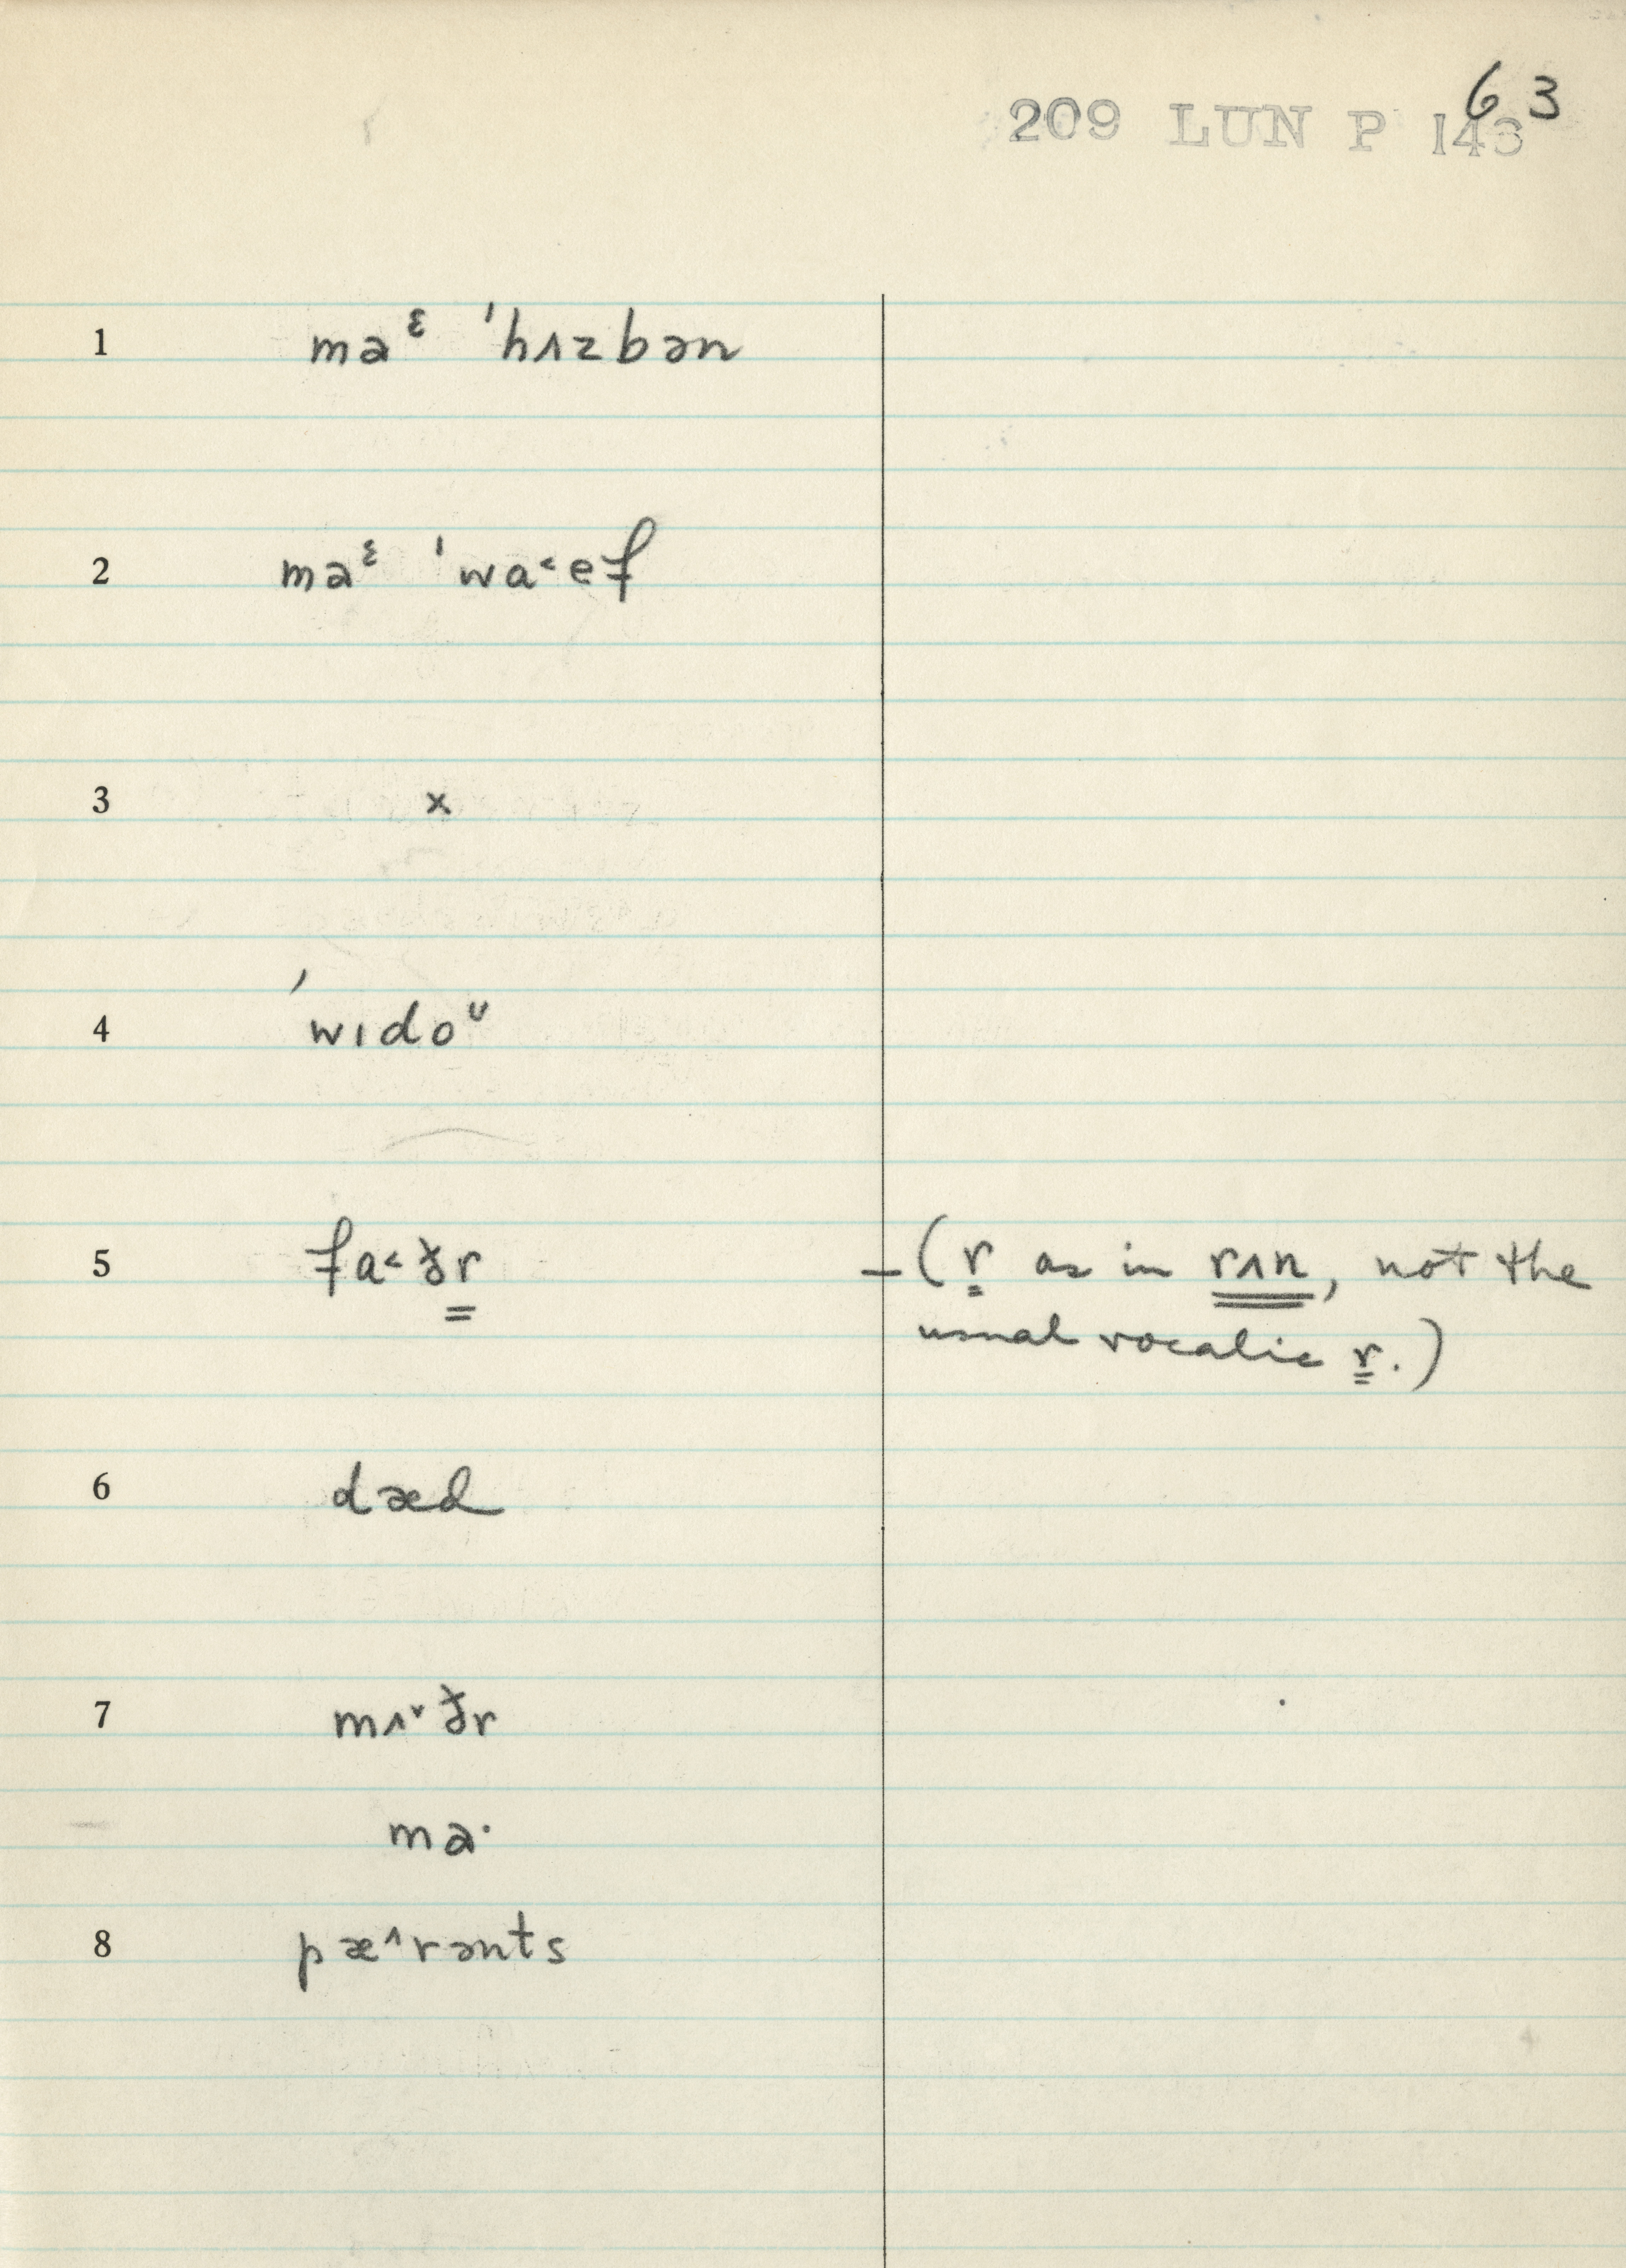 63
209 LUN P 143
1 ma^ɛ ˈhʌzbən
2 ma^ɛ ˈwa˂ef
3 x
4 ˈwɪdo^ᴜ
5 fa˂ðr – (r as in rʌn, not the
usual vocalic r.)
6 dæd
7 mʌ˅ðr
ma·
8 pæ˄rənts